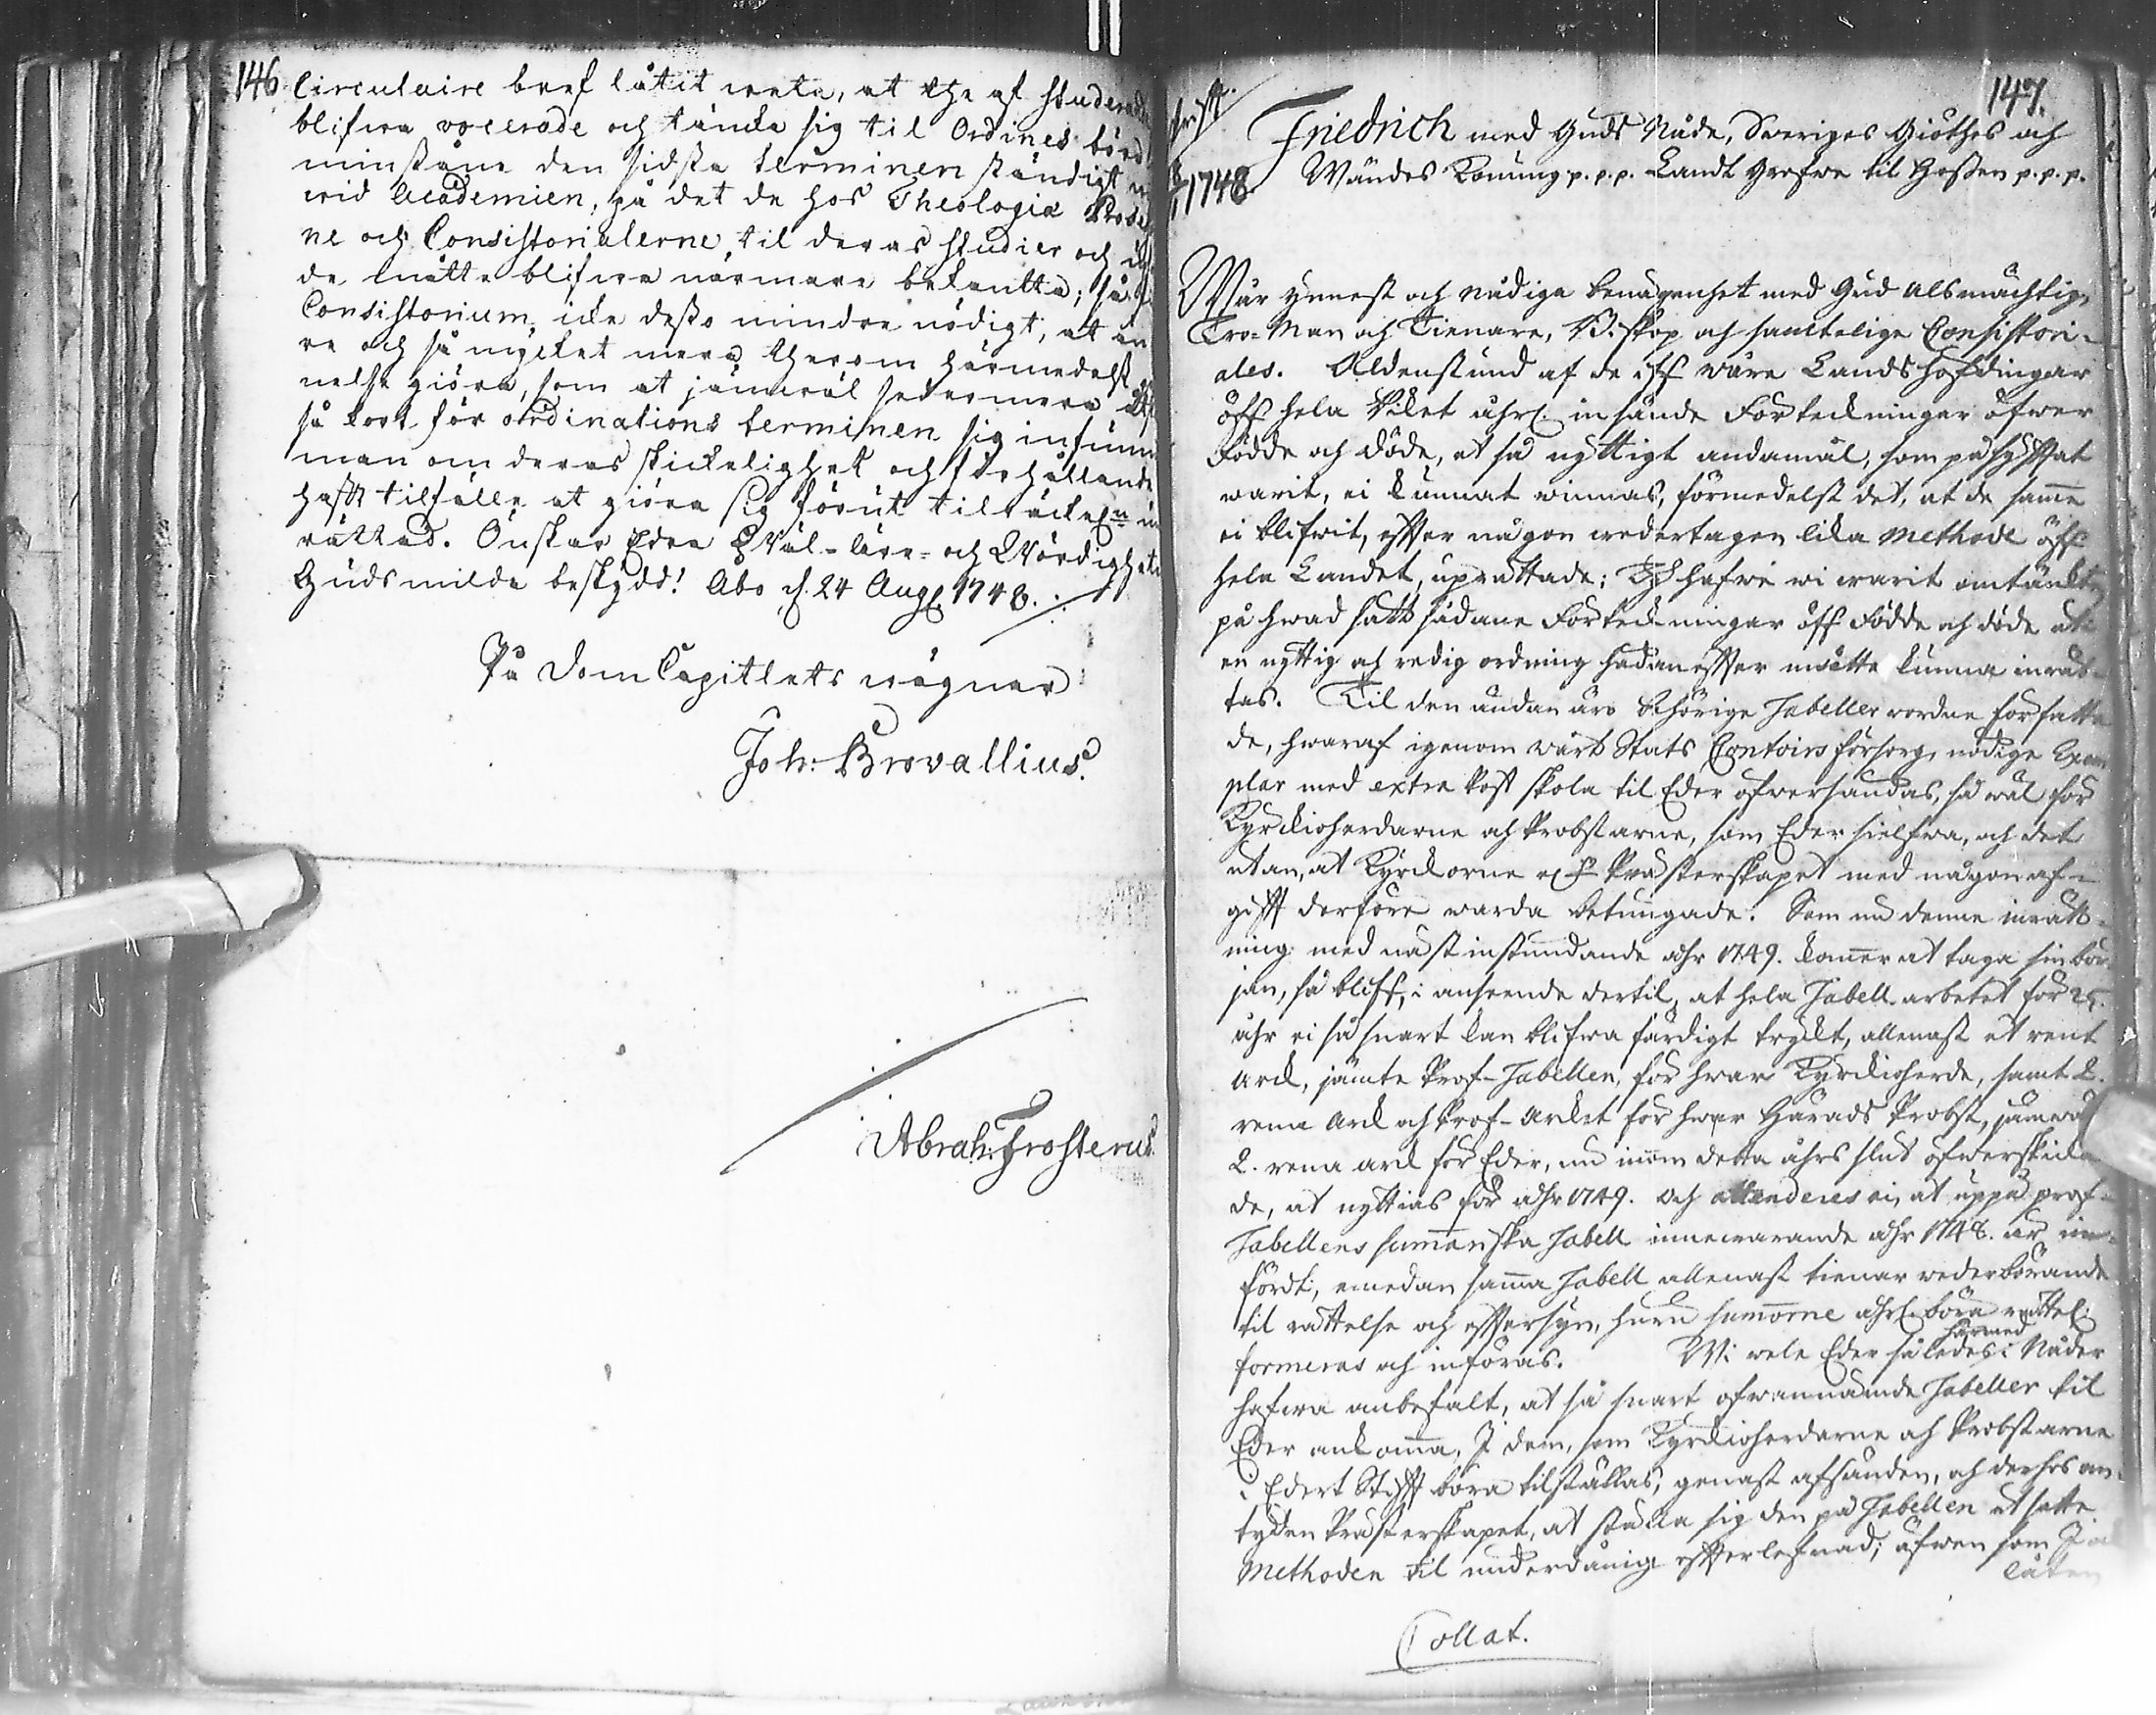 146
Circulaire bref låtit weta, at the af Studerande
blifwa vocerade och täncka sig til Ordines börd
minstone den sidsta terminen ständigt
wid Academien, på det de hos Theologiæ
ne och Consistorialerne til deras studier och
de måtte blifwa närmare bekantta; så
Consistorium icke desso mindre nödigt, at
re och så mycket mera therom härmedelst
nelse giöra, som at jämwäl sedermera
så kort för ordinations terminen sig infunn
man om deras skickelighet och förhållande
hafft tilfälle at giöra sig förut tilräckel:n
rättad. Önskar Eder Wäl-läre- och Wördighete
Guds milda beskydd! Åbo d. 24 Aug. 1748.
På DomCapitlets wägnar
Joh: Browallius.
Abrah: Frosterus.
147.
1748
Friedrich med Guds Nåde, Sweriges Giöthes och
Wändes Konung p. p. p. Landt Grefwe til Hessen p. p. p.
Wår ynnest och nådiga benägenhet med Gud Alsmächtig,
Tro-Man och Tienare, Biskop och samtelige Consistori-
ales. Aldenstund af de utaf wåre Landshöfdingar
öff hela Riket åhrl. insände Förteckningar öfwer
Födde och döde, et så nyttigt ändamål, som påsyfftat
warit, ei kunnat winnas, förmedelst det, at de samme
ei blifwit, effter någon wedertagen lika Methode öff
hela Landet, uprättade; Ty hafwe wi warit omtänckte
på hwad sätt sådane Förteckningar öff Födde och döde uti
en nyttig och redig ordning hädaneffter måtte kunna inrät-
tas. Til den ändan äro behörige Tabeller wordne författa
de, hwaraf igenom wårt Stats Contoirs försorg, nödige Exem
plar med extra Post skola til Eder öfwersändas, så wäl för
Kyrckioherdarne och Probstarne, som Eder sielfwa, och det
utan, at Kyrckorne el. Prästerskapet med någon af-
gifft derföre warda betungade. Som nu denne inrätt-
ning med näst instundande åhr 1749. kommer at taga sin bör-
jan, så blifr, i anseende dertil, at hela Tabell arbetet för 25.
åhr ei så snart kan blifwa färdigt tryckt, allenast et rent
Arck, jämte Prof-Tabellen, för hwar Kyrckioherde, samt 2.
rena Arck och Prof-Arcket för hwar Härads Probst, jämwäl
2. rena arck för Eder, nu innom detta åhrs slut öfwerskicka
de, at nyttias för åhr 1749. Och attenderes ei, at uppå prof-
Tabellens summariska Tabell innewarande åhr 1748. är in-
fördt, emedan samma Tabell allenast tienar wederbörande
til rättelse och effersyn, huru summorne åhrl. böra rättel:
formeras och införas. Wi wele Eder således härmed i Nåder
hafwa anbefalt, at så snart ofwannämde Tabeller til
Eder ankomma, I dem, som Kyrckioherdarne och Probstarne
i Edert Stifft böra tilställas, genast afsänden, och derhos an-
tyden Prästerskapet, at ställa sig den på Tabellen utsatte
Methoden til underdånig effterlefnad; äfwen som I
låten
Collat.